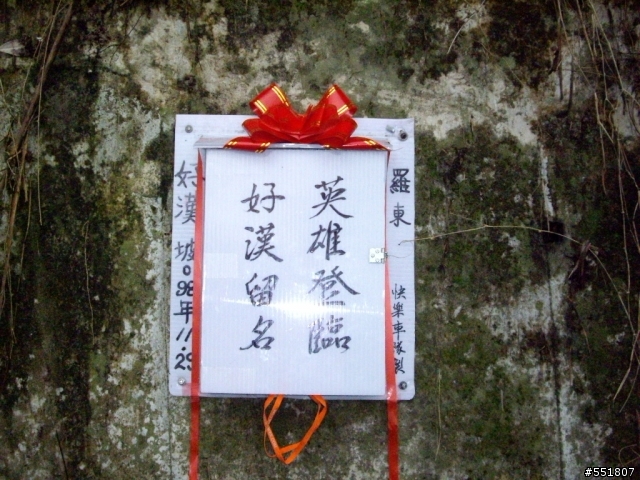 羅東
快樂車隊製
英雄登臨
好漢留名
好漢坡。98年11.29
#551807